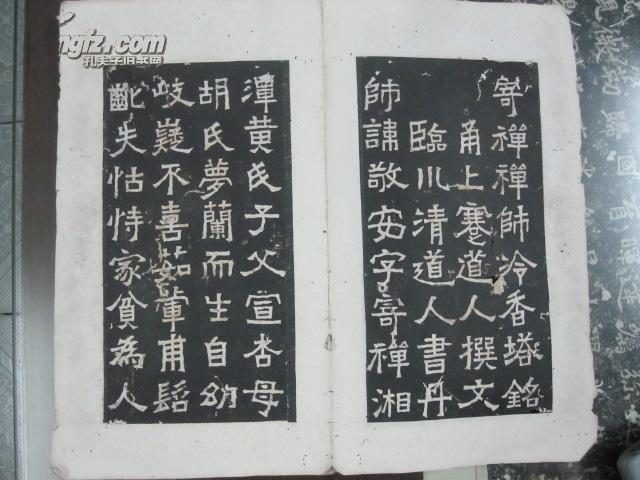 寄禪禪師冷香塔銘
甬上蹇道人撰文
臨川清道人書丹
師諱敬安字寄禪湘
潭黃氏子父宣杏母
胡氏夢蘭而生自幼
岐嶷不喜茹葷甫齠
齔失怙恃家貧為人
ngfz.com
孔夫子旧书网